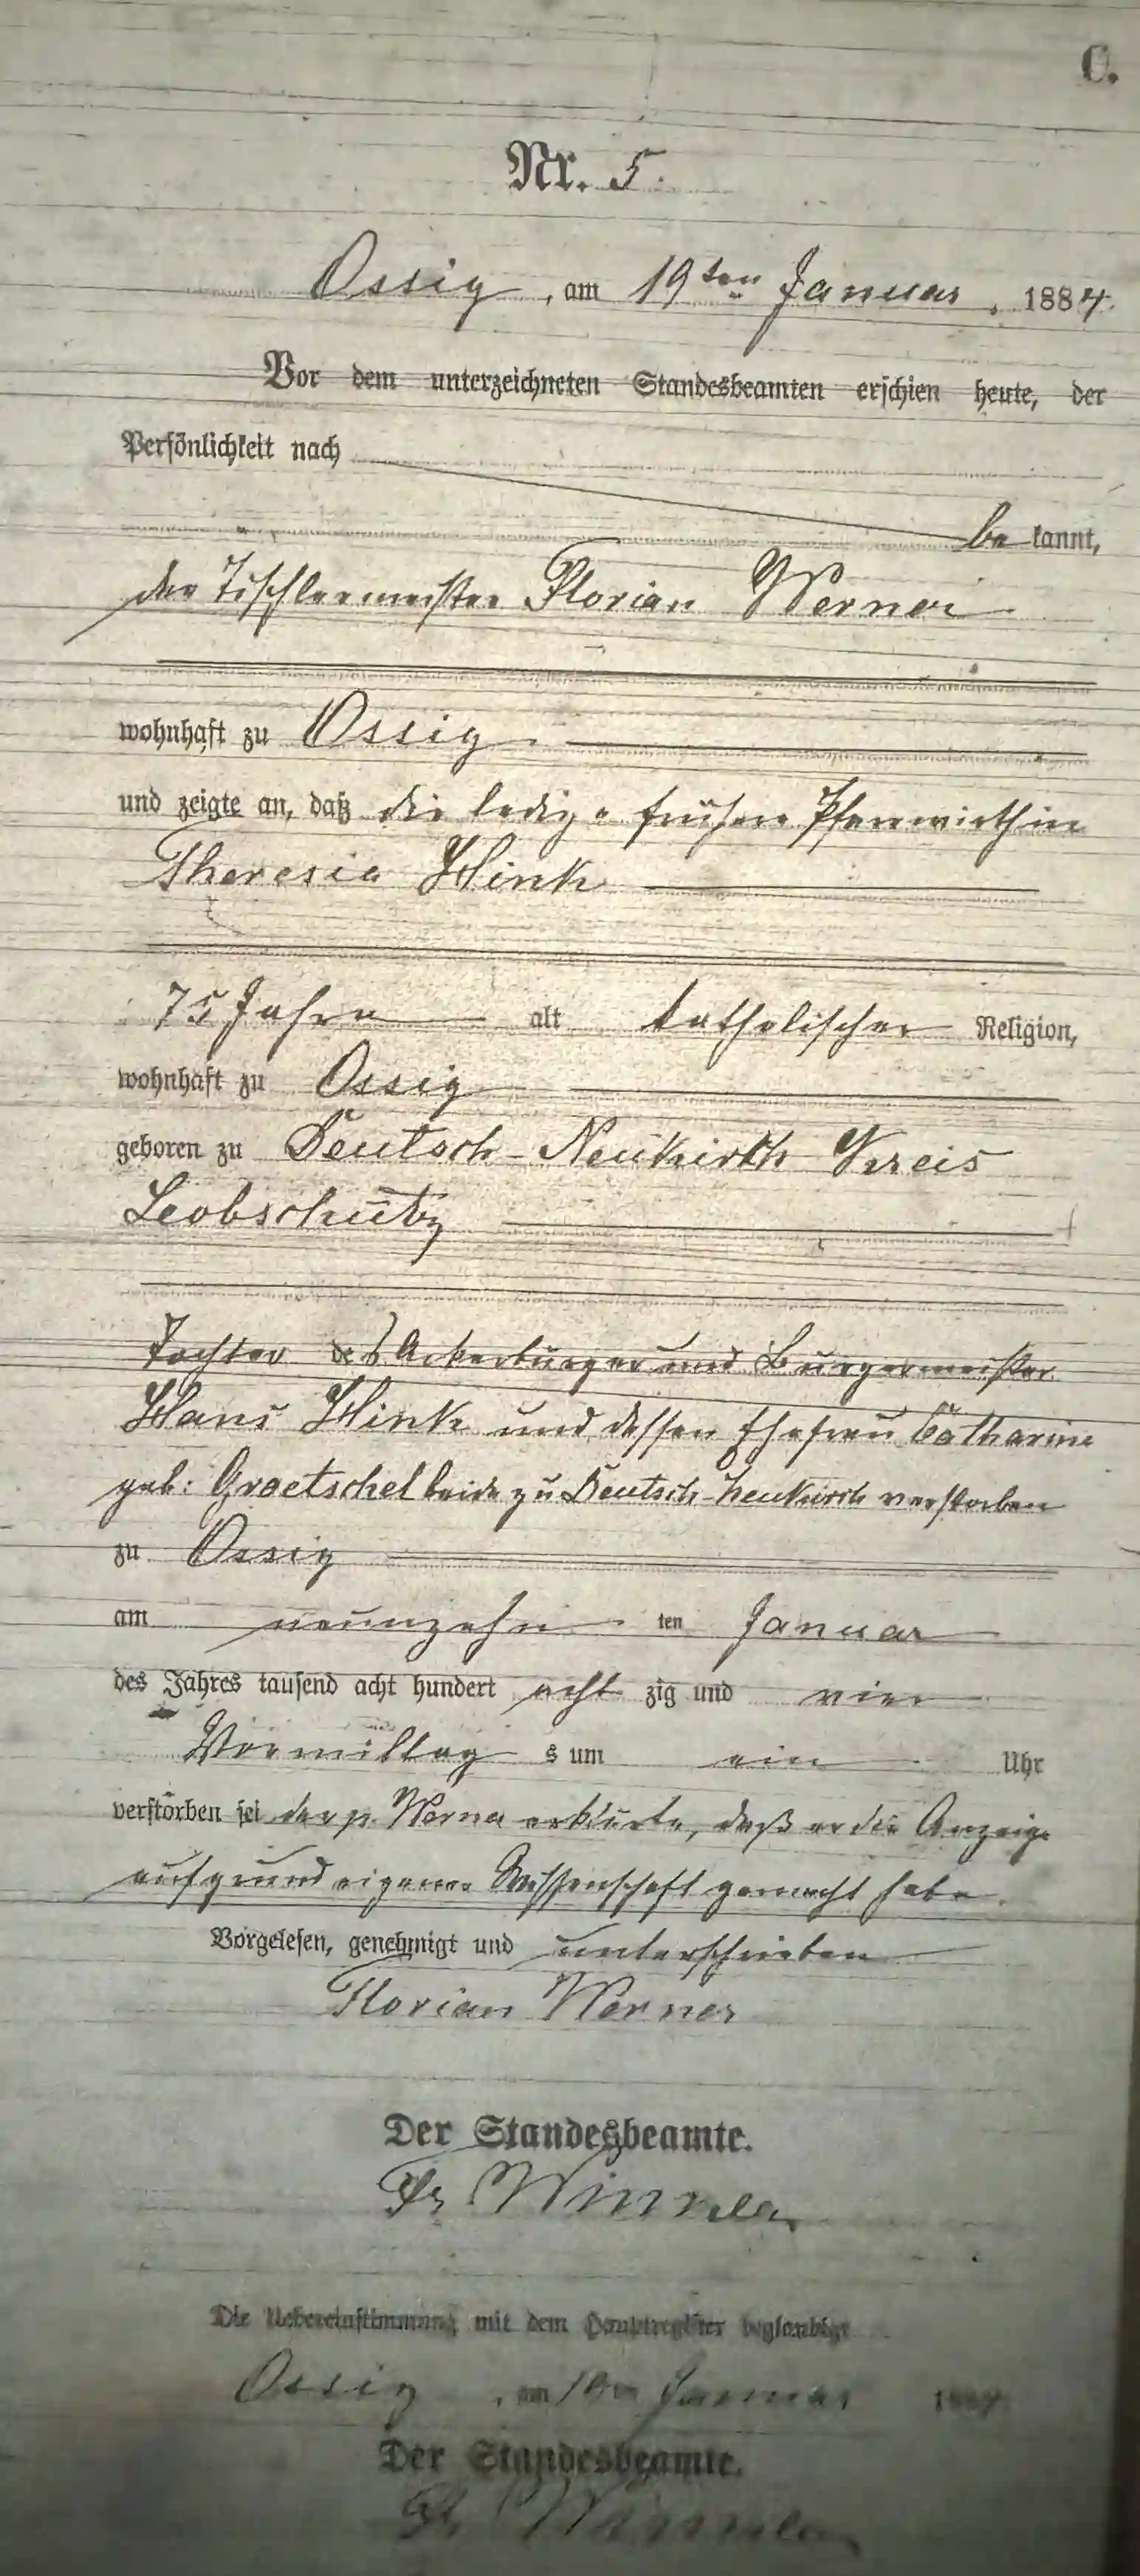 C.
Nr. 5.
Ossig, am 19ten Januar 1884.
Vor dem unterzeichneten Standesbeamten erschien heute, der
Persönlichkeit nach
be kannt,
der Tischlermeister Florian Werner
wohnhaft zu Ossig.
und zeigte an, daß die ledige frühere Pfarrwirthin
Theresia Hink
75 Jahre alt katholischer Religion,
wohnhaft zu Ossig
geboren zu Deutsch-Neukirch Kreis
Leobschütz
Tochter des Ackerbürger und Bürgermeister
Hans Hink und dessen Ehefrau Catharina
geb: Groetschel beide zu Deutsch-Neukirch verstorben
zu Ossig
am neunzehn ten Januar
des Jahres tausend acht hundert acht zig und vier
Vormittag s um ein Uhr
verstorben sei der p. Werner erklärte, daß er die Anzeige
aufgrund eigener Wissenschaft gemacht habe.
Vorgelesen, genehmigt und unterschrieben
Florian Werner
Der Standesbeamte.
Die Uebereinstimmung mit dem Hauptregister beglaubigt
Ossig, am Januar 1884.
Der Standesbeamte.